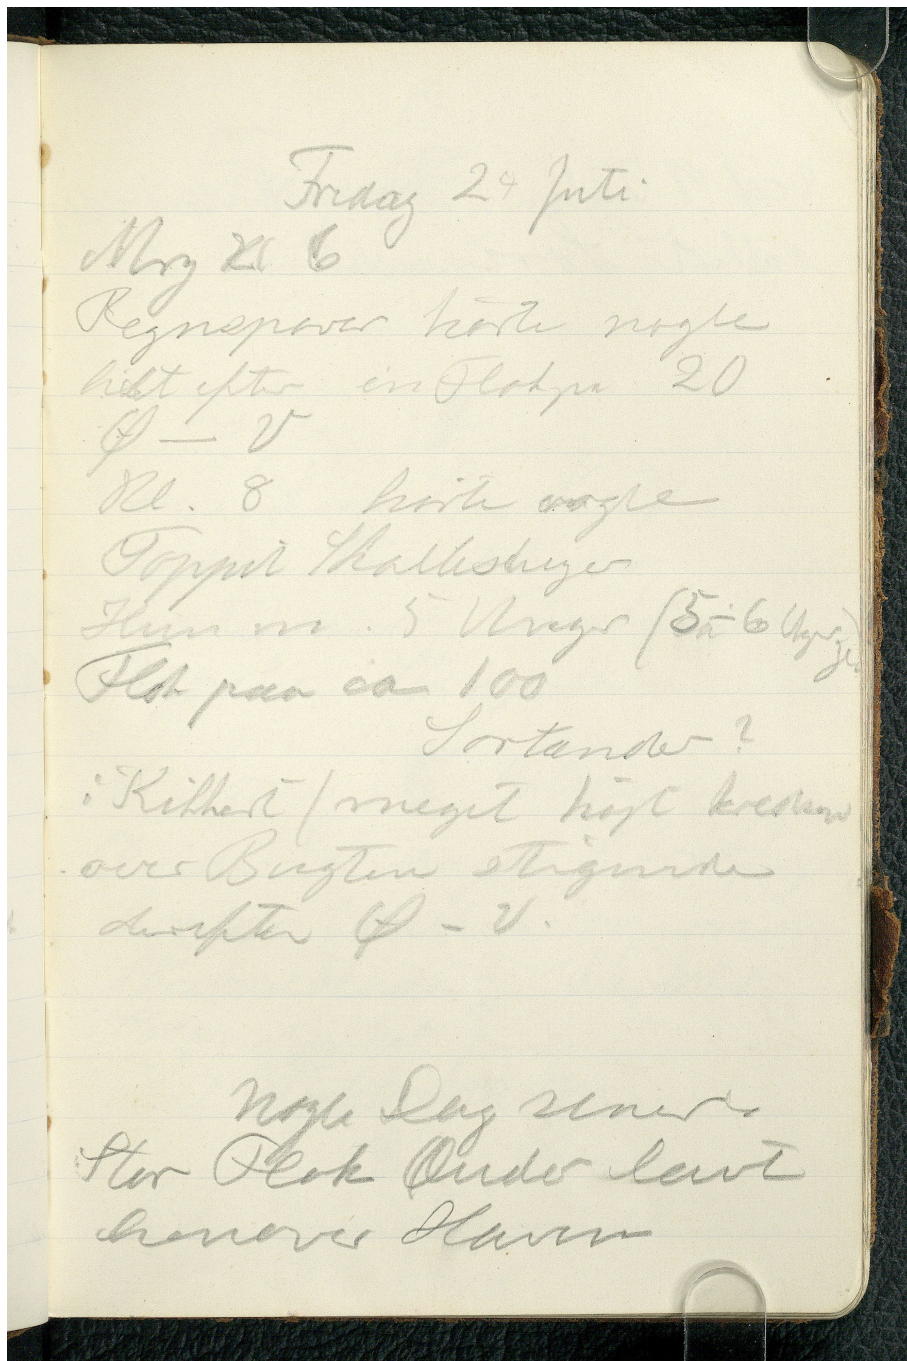 Fredag 24 Juli
Mrg Kl 6
Regnspover hørte nogle
lidt efter en Flok paa 20
Ø — V
Kl. 8 hørte nogle
Toppet Skallesluger
Hun m. 5 Unger (5 à 6 Uger gl.
Flok paa ca 100
Sortænder?
i Kikkert / meget højt
over Bugten stigende
derefter Ø – V.
Nogle Dag senere
Stor Flok Ænder lavt
henover Haven